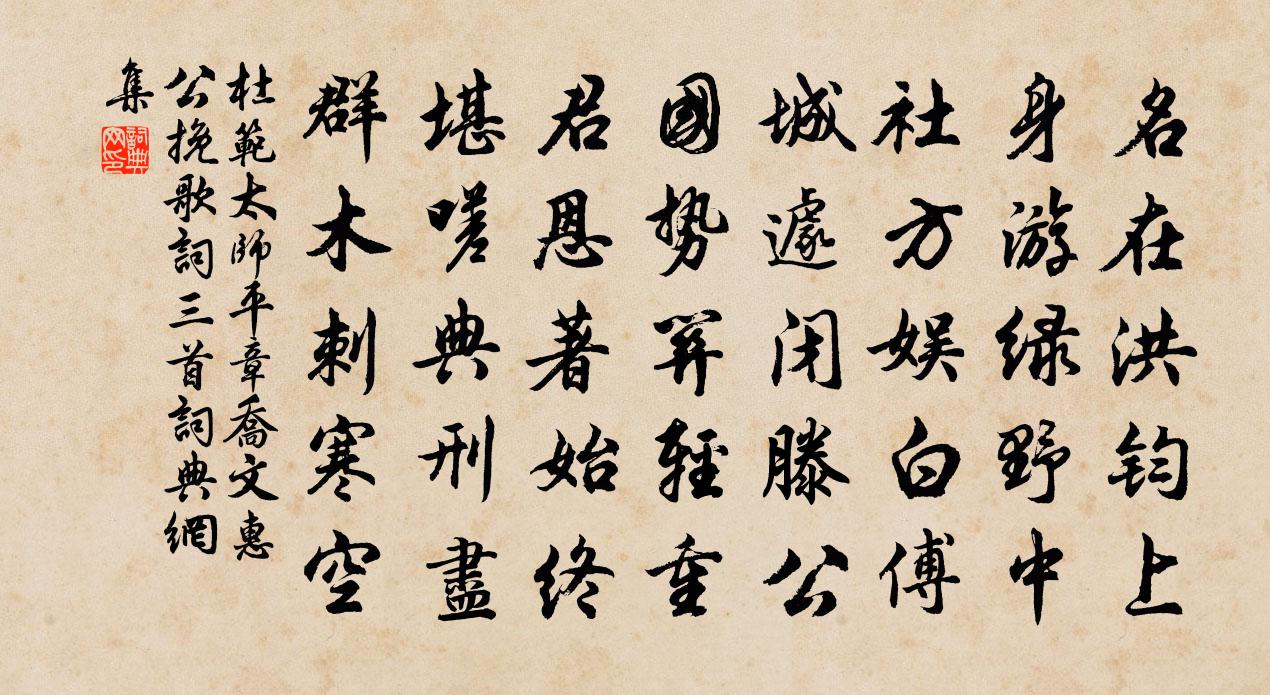 名在洪钧上
身游绿野中
社方娱白傅
城遽闭滕公
國势筭輕重
君恩著始终
堪嗟典刑盡
群木刺寒空
杜範太師平章喬文惠
公挽歌詞三首詞典網
集
詞典网印